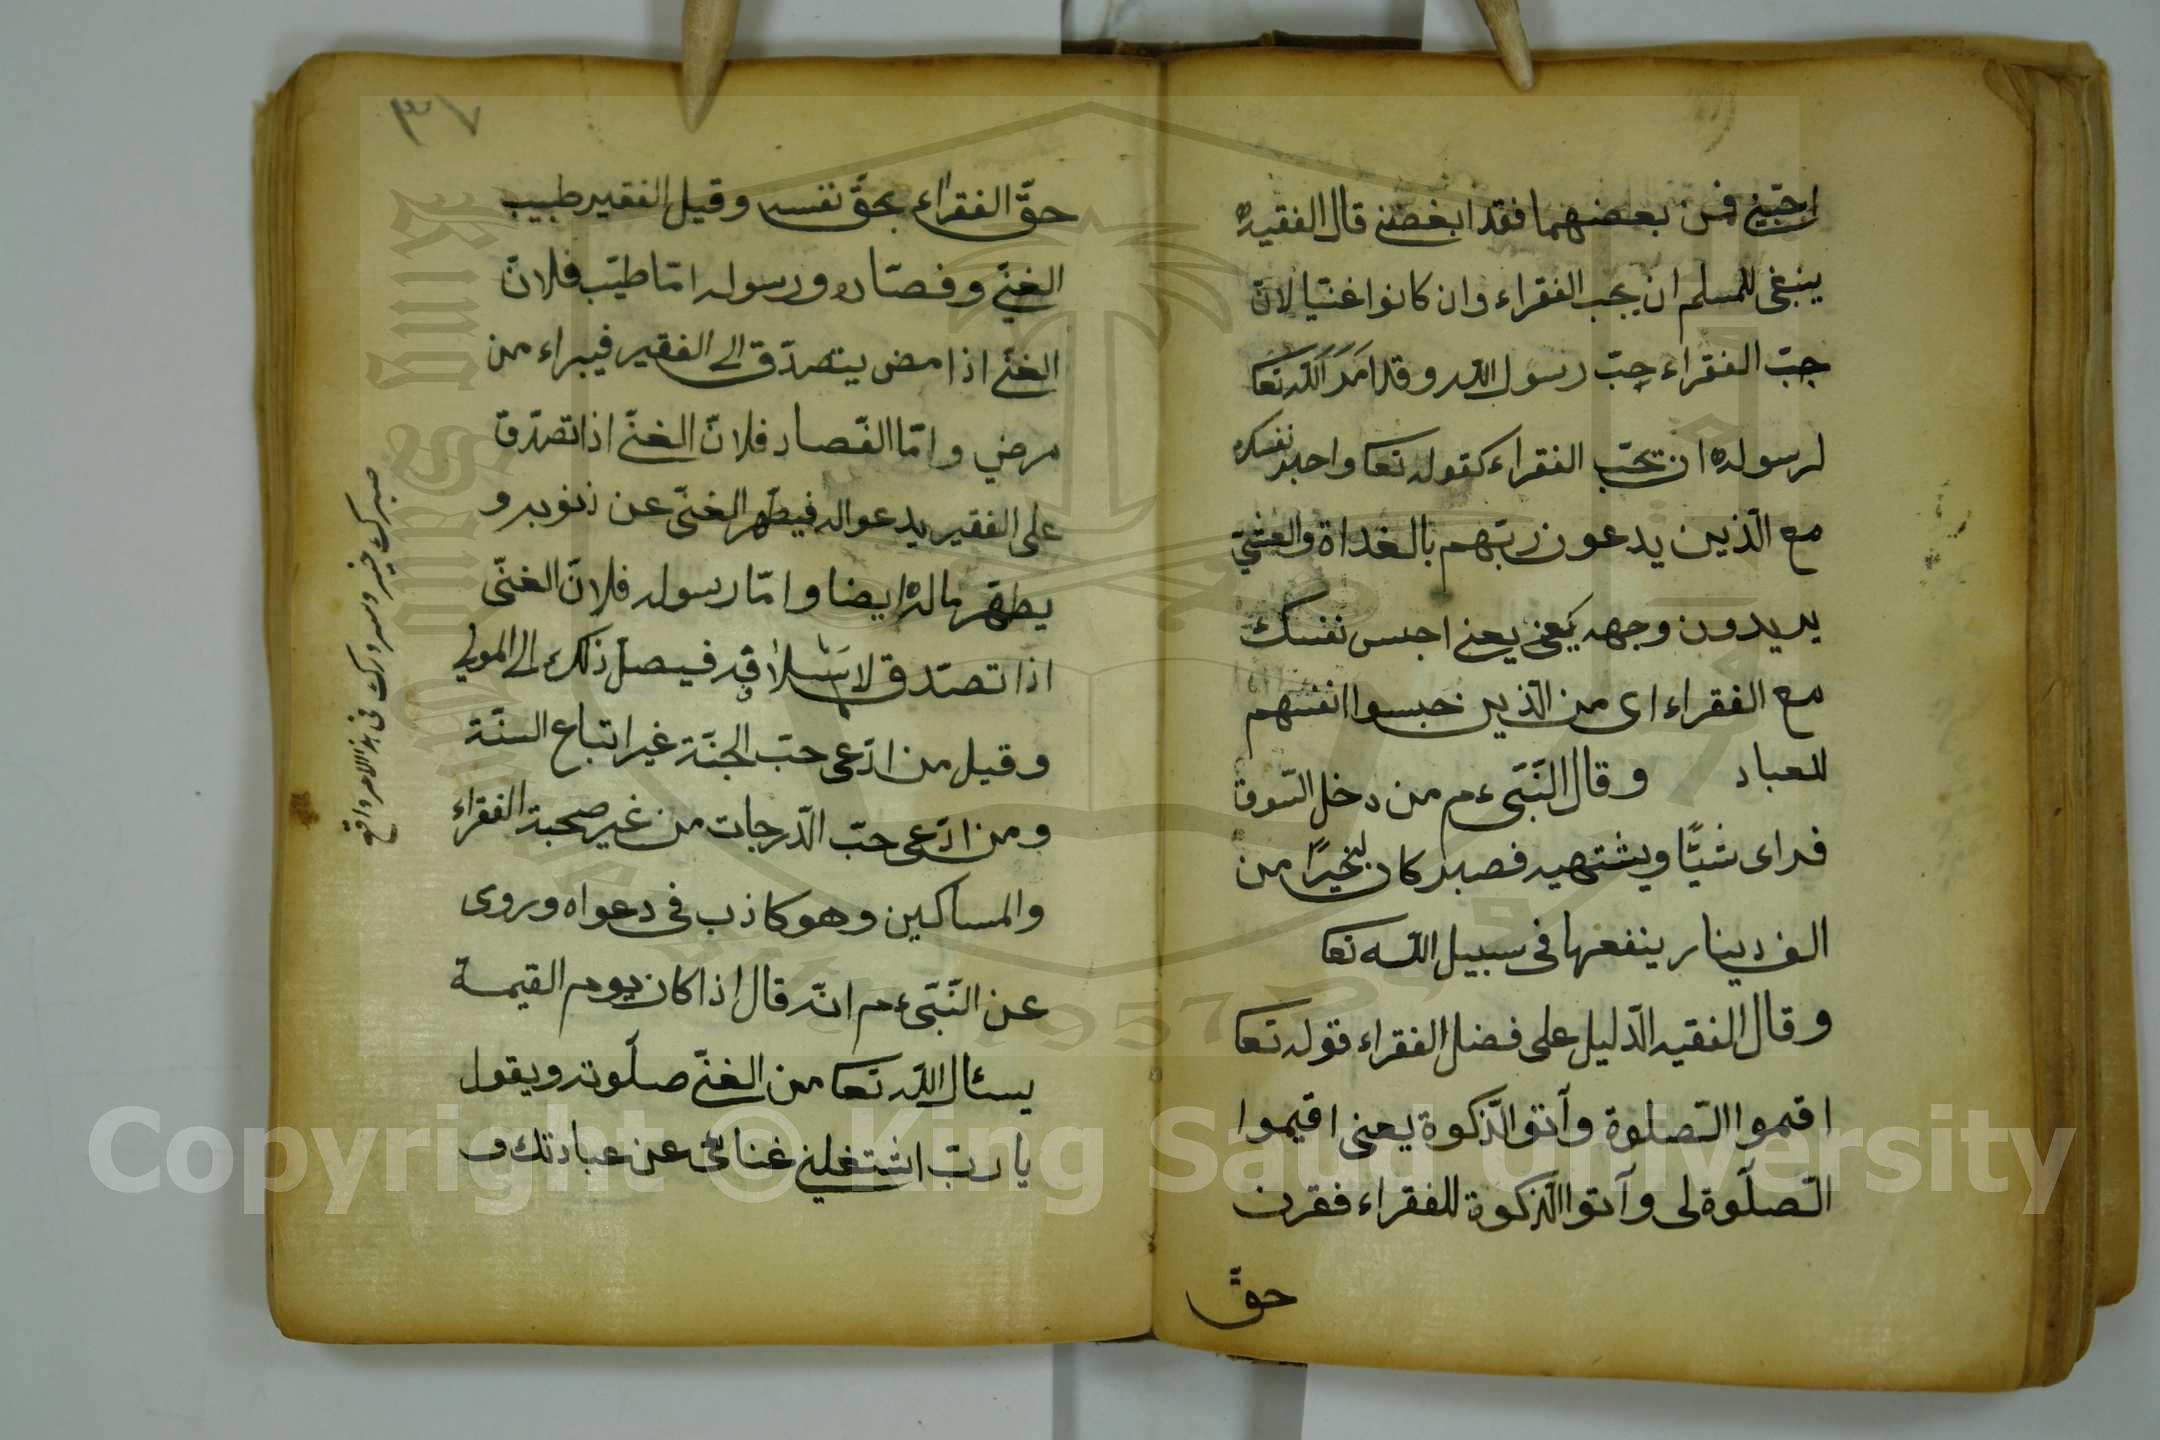 احبّني فمن بعضهما فقد ابغضني قال الفقيه
ينبغى للمسلم ان يحب الفقراء وان كانوا غنيّا لانّ
حبّ الفقراء حبّ رسول اللّه وقد امَرَ اللّه تعا
لرسوله ان يحبّ الفقراء كقوله تعا واصبر نفسك
مع الّذين يدعون ربّهم بالغداة والعشيّ
يريدون وجهه يعنى احبس نفسك
مع الفقراء اى من الّذين حبسوا انفسهم
للعباد وقال النّبّى ءم من دخل السّوق
فراى شيًّا ويشتهيه فصبر كان خيرًا من
الف دينار ينفعها فى سبيل اللّه تعا
وقال الفقيه الدّليل على فضل الفقراء قوله تعا
اقيموا الصّلوة وآتوا الزّكوة يعنى اقيموا
الصّلوة لى وآتوا الزّكوة للفقراء فقرن
حقّ
٣٧
حقّ الفقراء بحقّ نفسه وقيل الفقير طبيب
الغنّي وقصّاره ورسوله امّا طيّب فلانّ
الغنّي اذا مض يتصدّق الى الفقير فيبراء من
مرضي وامّا القصّار فلانّ الغنّي اذا تصدّق
على الفقير يدعو اله فيطهّر الغنّى عن ذنوبه و
يطهّر ماله ايضا وامّا رسوله فلانّ الغنّى
اذا تصدّق لاسلافه فيصل ذلك الى الموتى
وقيل من ادّعى حبّ الجنّة غير اتباع السنّة
ومن ادّعى حبّ الدّرجات من غير صحبة الفقراء
والمساكين وهو كاذب فى دعواه وروى
عن النّبّى ءم انّه قال اذا كان يوم القيمة
يسئال اللّه تعا من الغنّي صلوته ويقول
يا ربّ اشتغلني غنائى عن عبادتك و
صبرك خير وسرورك فى هذا الامر واقع
Copyright © King Saud University
King Saud University
1957